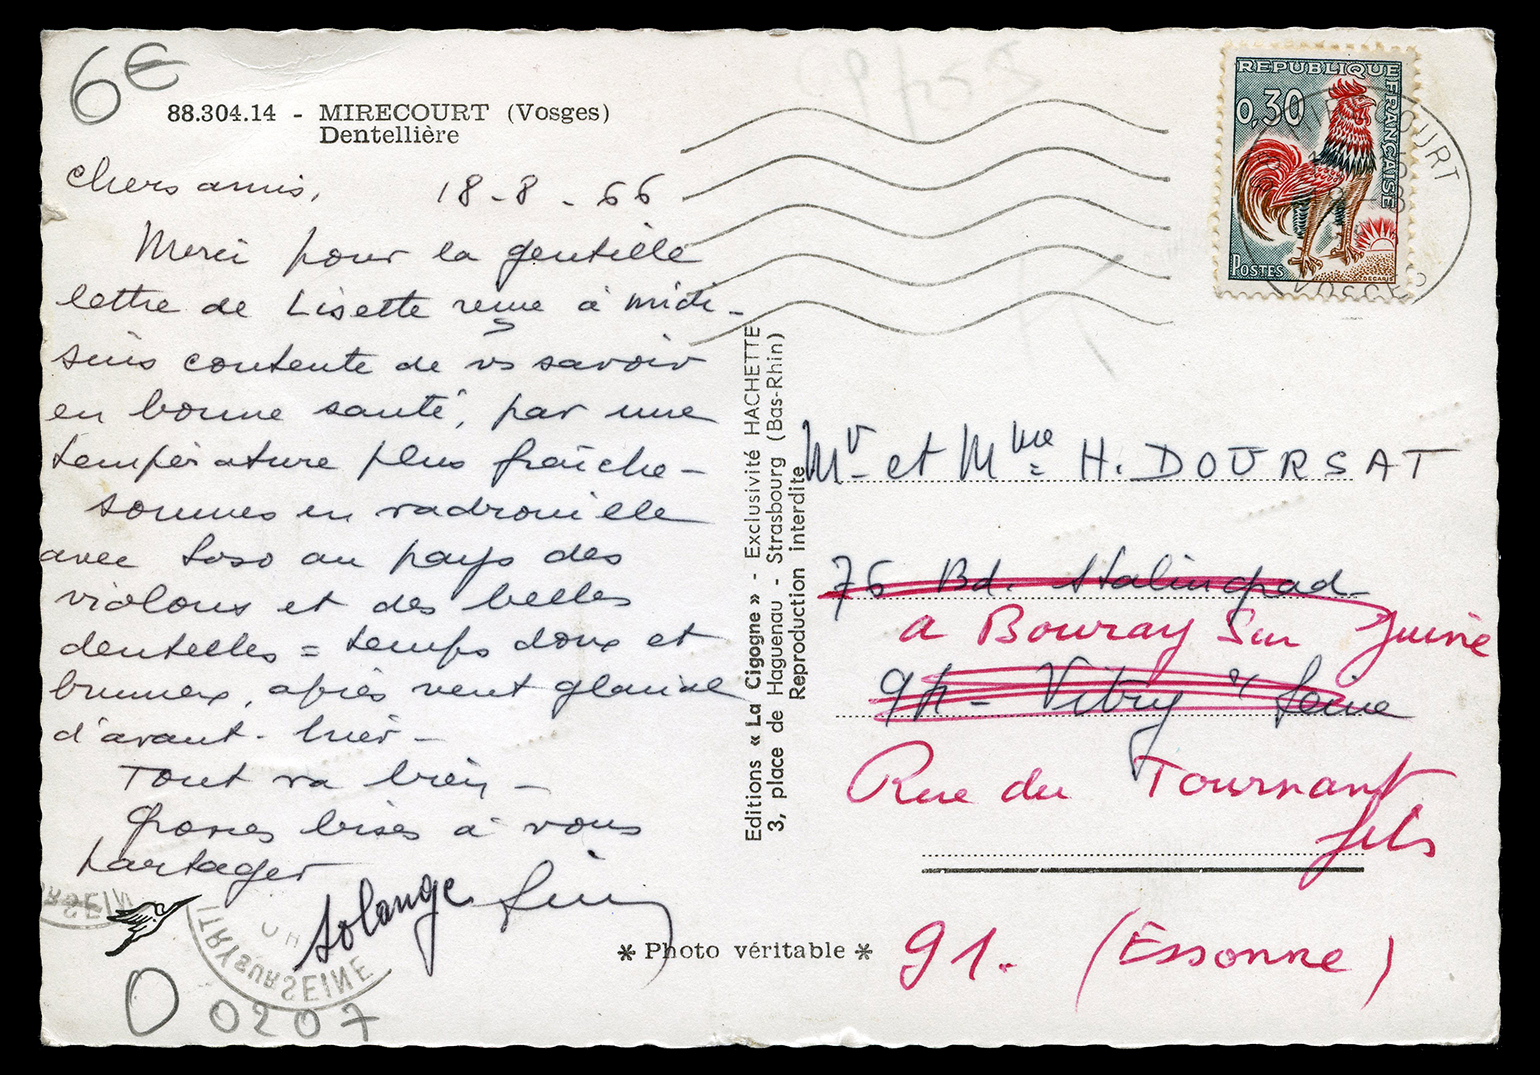 6€
88.304.14 - MIRECOURT (Vosges)
Dentellière
chers amis, 18-8-66
Merci pour la gentille
lettre de Lisette reçue à midi -
suis contente de vs savoir
en bonne santé, par une
température plus fraîche -
sommes en vadrouille
avec Soso au pays des
violons et des belles
dentelles = temps doux et
brumeux, après vent glacial
d'avant-hier -
Tout va bien -
Grosses bises à vous
partager
Solange
0 0207
VITRY SUR SEINE
* Photo véritable *
Editions « La Cigogne » - Exclusivité HACHETTE
3, place de Haguenau - Strasbourg (Bas-Rhin)
Reproduction interdite
REPUBLIQUE FRANÇAISE
0,30
POSTES
DECARIS
MIRECOURT
VOSGES
Mr et Mme H. DOURSAT
76 Bd. Stalingrad
a Bouray Sur Juine
94 - Vitry s/ Seine
Rue du Tournant
fils
91. (Essonne)